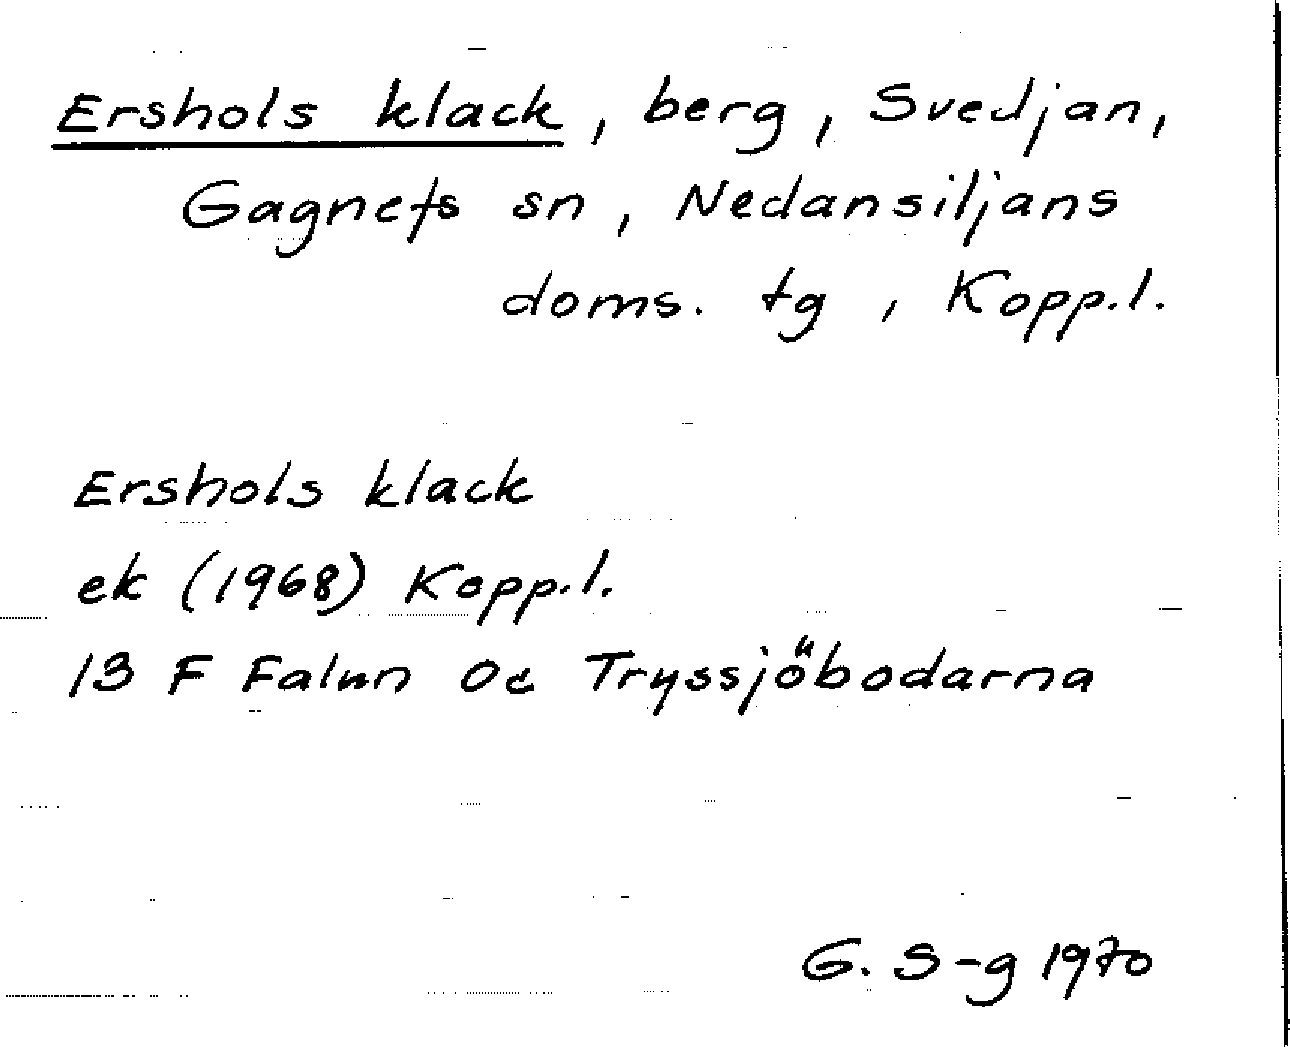 Ershols klack, berg, Svedjan,
Gagnefs sn, Nedansiljans
doms. tg, Kopp.l.
Ershols klack
ek (1968) Kopp.l.
13 F Falun 0c Tryssjöbodarna
G. S-g 1970